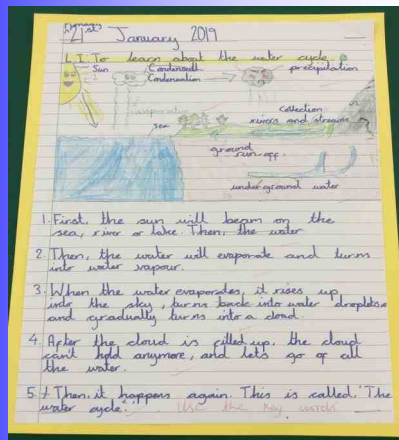 21st January 2019
L.I. To learn about the water cycle.
Sun Condensation precipitation
Condensation
Evaporation
collection
sea rivers and streams
ground
run-off
underground water
1. First, the sun will beam on the
sea, river or lake. Then, the water
2. Then, the water will evaporate and turns
into water vapour.
3. When the water evaporates, it rises up
into the sky, turns back into water droplets
and gradually turns into a cloud.
4. After the cloud is filled up, the cloud
can't hold anymore, and lets go of all
the water.
5. Then, it happens again. This is called 'The
water cycle'. Use the key words